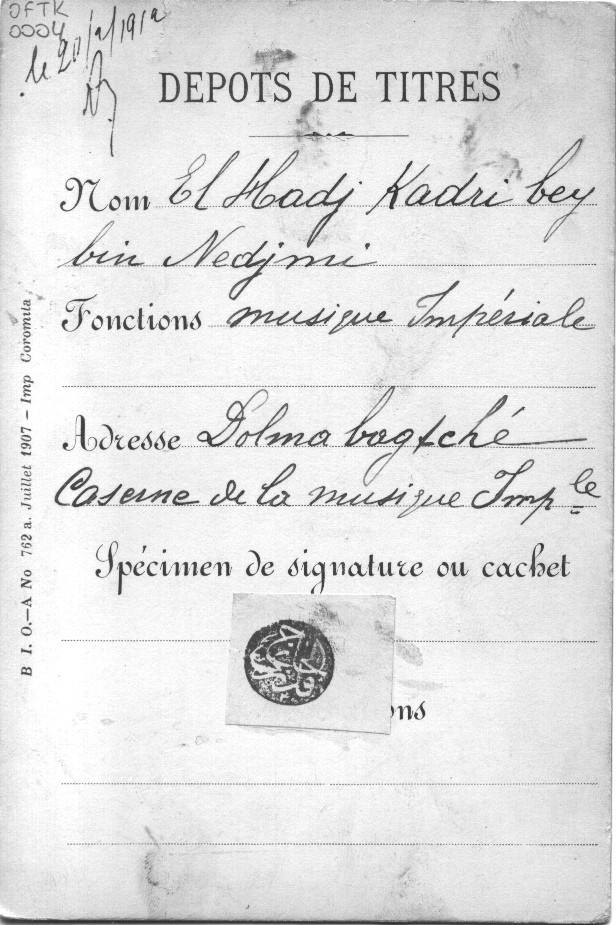 OFTK
0004
le 20
DEPOTS DE TITRES
Nom El Hadj Kadri bey
bin Nedjmi
Fonctions musique Impériale
Adresse Dolma bagtché
Caserne de la musique Imple
Spécimen de signature ou cachet
ons
B I. O.—A No 762 a. Juillet 1907 – Imp Coromila